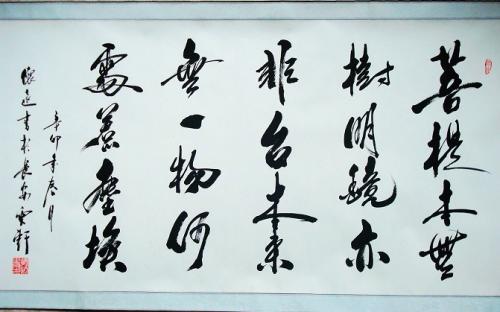 菩提本無
樹明鏡亦
非台本来
無一物何
處惹塵埃
辛卯年春月
書於長安